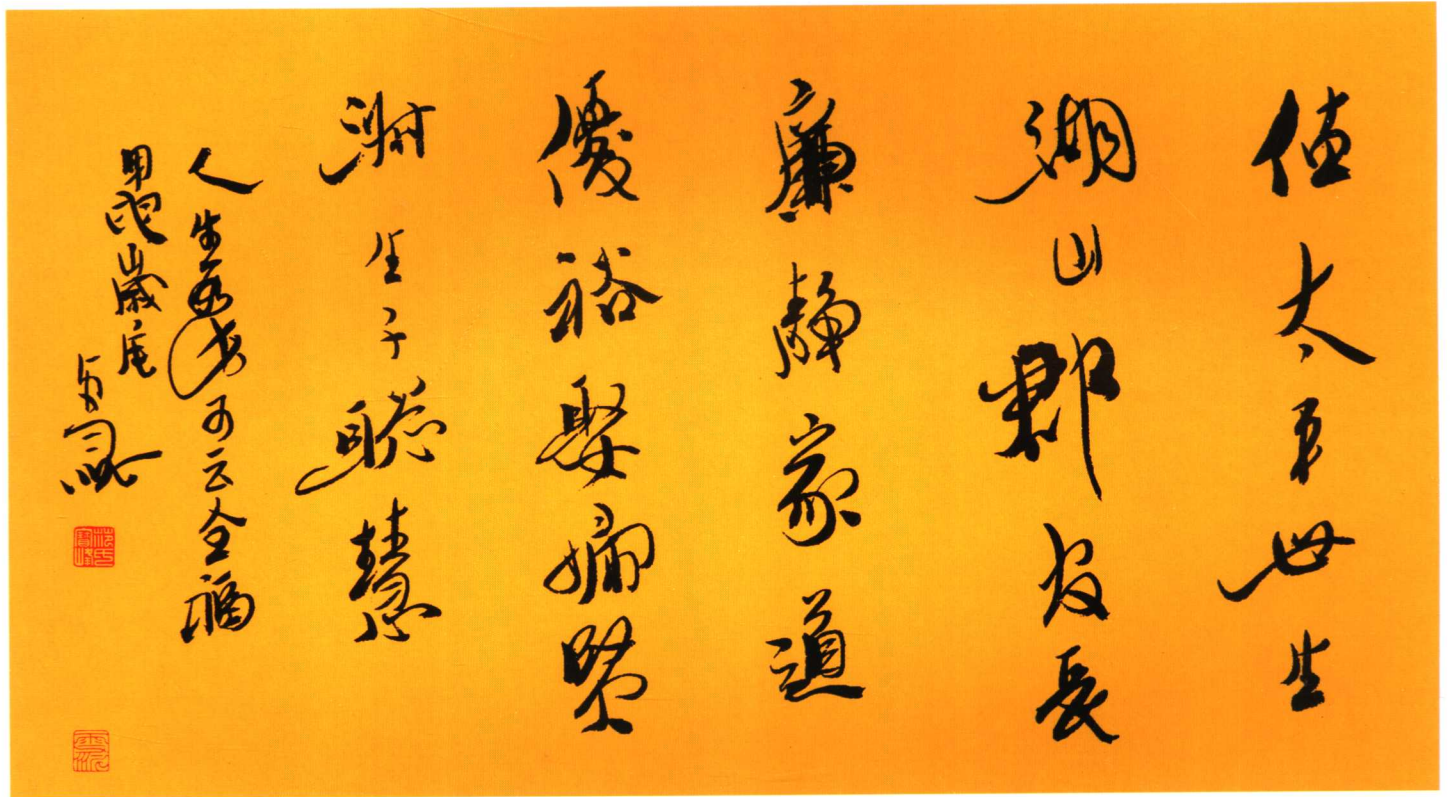 值太平世生
湖山郡官長
廉靜家道
優裕娶婦賢
淑生子聰慧
人生如此可云全福
甲歲尾